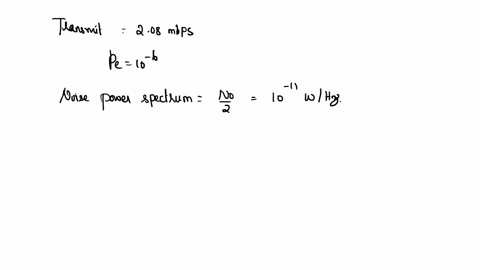 Transmit = 2.08 mbps
Pe = 10^-6
Noise power spectrum = No/2 = 10^-11 W/Hz.